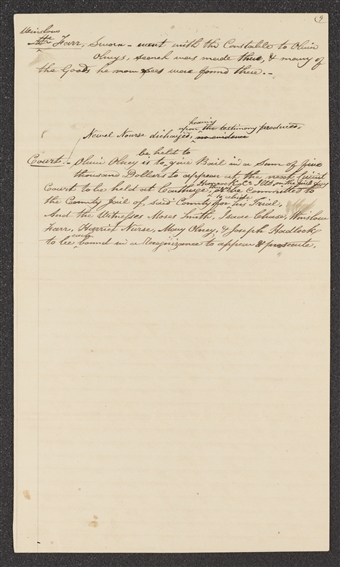 (9
Winslow
Farr, Sworn - went with the Constable to Oliver
Olneys, search was made there, & many of
the Goods he now sees were found there. -
hearing
Newel Nourse discharged, upon the testimony produced, no evidence
be held to
Court. - Oliver Olney is to give Bail in a sum of Five
thousand Dollars to appear at the next Circuit
Hancock Co. Ills on the first day
Court to be held at Carthage, or be Committed to
to wait
the County Jail of said County for his Trial,
And the Witnesses Moses Smith, Isaac Chase, Winslow
Farr, Harriet Nurse, Mary Olney, & Joseph Hadlock,
to be bound in a recognizance to appear & prosecute.